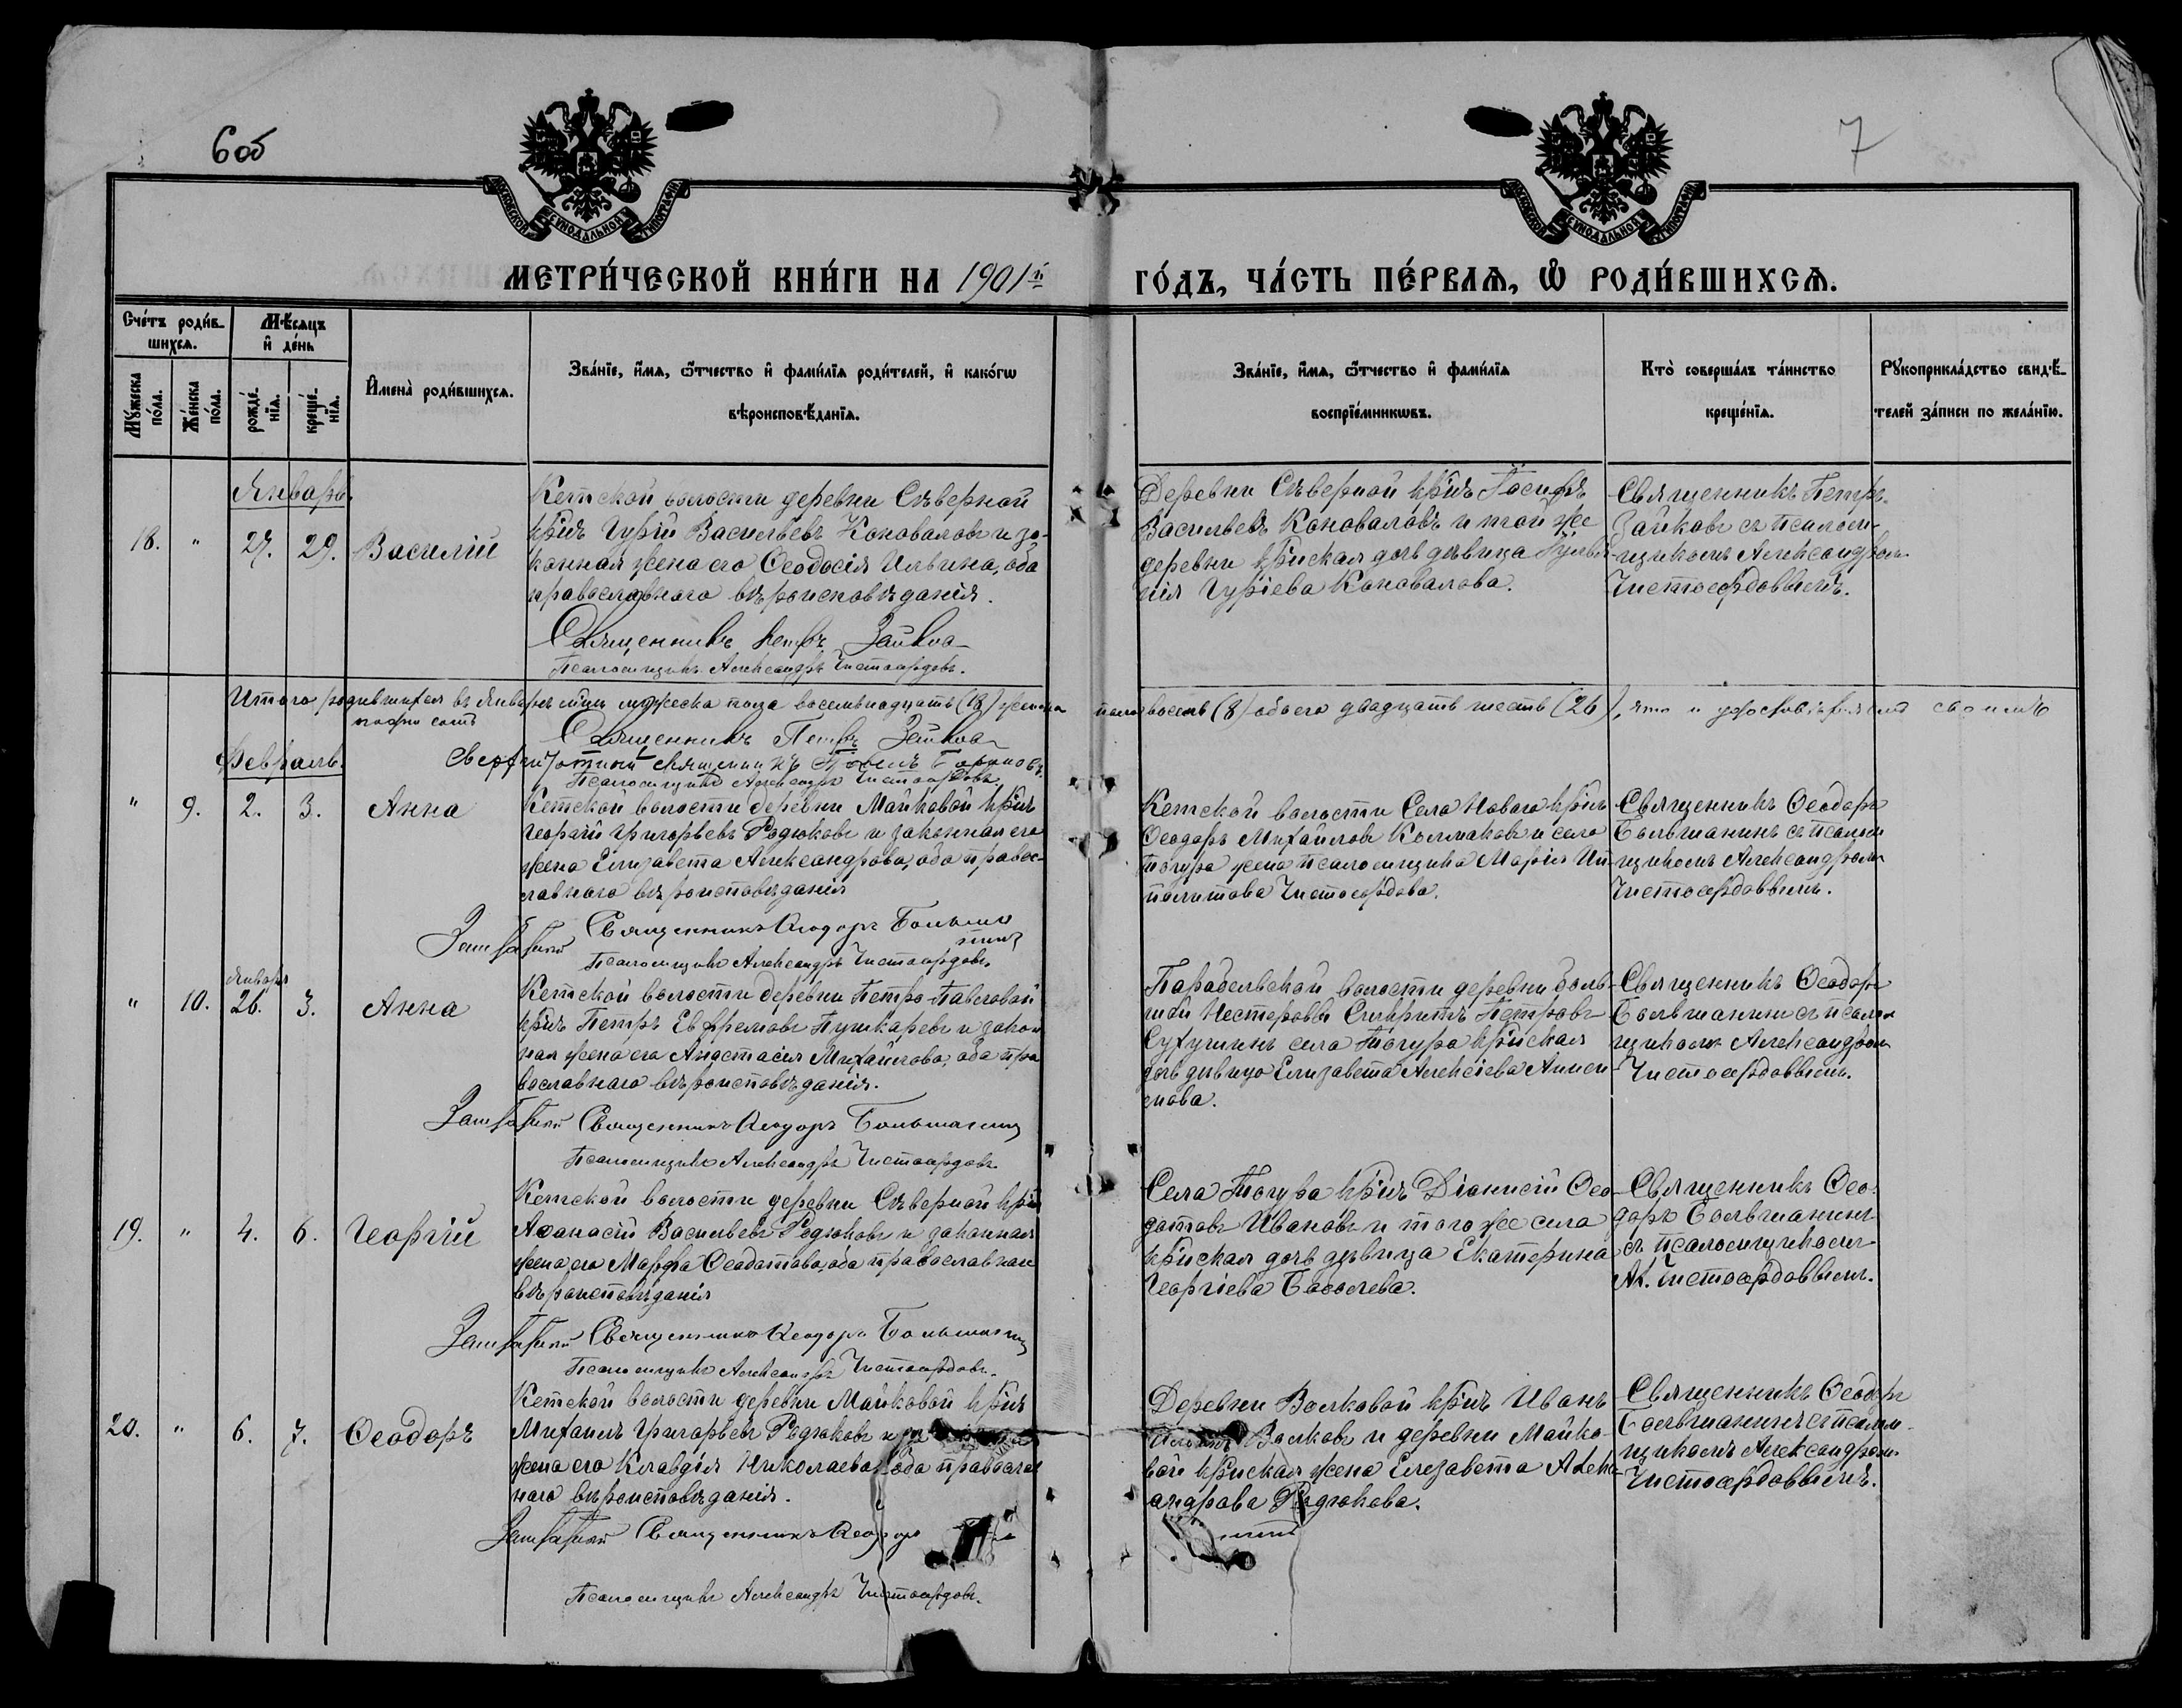 6об
7
МОСКОВСКОЙ СѴНОДАЛЬНОЙ ТИПОГРАФІИ
МОСКОВСКОЙ СѴНОДАЛЬНОЙ ТИПОГРАФІИ
МЕТРИ́ЧЕСКОЙ КНИ́ГИ НА 1901й
ГО́ДЪ, ЧА́СТЬ ПЕ́РВАѦ, Ѡ РОДИ́ВШИХСѦ.
Сче́тъ роди́в-
шихсѧ.
Мѣ́сѧцъ
и҆ де́нь
Мꙋ́жеска
по́ла.
Же́нска
по́ла.
рожде́-
нїѧ.
креще́-
нїѧ.
И҆мена̀ роди́вшихсѧ.
Зва́нїе, и҆́мѧ, ѻ҆́тчество и҆ фами́лїѧ роди́телей, и҆ како́гѡ
вѣроисповѣ́данїѧ.
Зва́нїе, и҆́мѧ, ѻ҆́тчество и҆ фами́лїѧ
воспрїе́мникѡвъ.
Кто̀ соверша́лъ та́инство
креще́нїѧ.
Рꙋкоприкла́дство свидѣ́-
телей за́писи по жела́нїю.
Январь.
18. " 27. 29. Василій
Кетской волости деревни Сѣверной
крн҃ъ Гурій Васильевъ Коноваловъ и за-
конная жена его Ѳеодосія Ильина, оба
православнаго вѣроисповѣданія.
Священникъ Петръ Зайков
Псаломщикъ Александръ Чистосердовъ.
Деревни Сѣверной крн҃ъ Іосифъ
Васильевъ Коноваловъ и той же
деревни кр҃нская дочь дѣвица
нія Гуріева Коновалова.
Священникъ Петръ
Зайковъ съ псалом-
щикомъ Александромъ
Чистосердовымъ.
Итого родившихся въ Январѣ мѣсяцѣ мужеска пола восемьнадцать (18) женска
пола восемь (8) обоего двадцать шесть (26), что и удостовѣряемъ своимъ
подписомъ
Священникъ Петръ Зайков
Сверхштатный священникъ
Псаломщикъ Александръ Чистосердовъ
Февраль.
" 9. 2. 3. Анна
Кетской волости деревни Майковой крн҃ъ
Георгій Григорьевъ Родюковъ и законная его
жена Елизавета Александрова, оба правос-
лавнаго вѣроисповѣданія
Заштатный Священникъ Ѳеодоръ Большанинъ
Псаломщикъ Александръ Чистосердовъ.
Кетской волости Села Новаго крн҃ъ
Ѳеодоръ Михайловъ Колмаковъ и села
Тогура жена псаломщика Марія Ип-
политова Чистосердова.
Священникъ Ѳеодоръ
Большанинъ съ псалом-
щикомъ Александромъ
Чистосердовымъ.
Январь
" 10. 26. 3. Анна
Кетской волости деревни Петро-Павловой
крн҃ъ Петръ Евфремовъ Пушкаревъ и закон
ная жена его Анастасія Михайлова, оба пра
вославнаго вѣроисповѣданія.
Заштатный Священникъ Ѳеодоръ Большанинъ
Псаломщикъ Александръ Чистосердовъ.
Парабельской волости деревни Боль-
шой Нестеровы Петровъ
Сутугинъ села Тогура кр҃нская
дочь дѣвица Елизавета Алексіева Аниси
мова.
Священникъ Ѳеодоръ
Большанинъ съ псалом
щикомъ Александромъ
Чистосердовымъ.
19. " 4. 6. Георгій
Кетской волости деревни Сѣверной крн҃ъ
Аѳанасій Васильевъ Родюковъ и законная
жена его Марѳа Ѳеодотова, оба православнаго
вѣроисповѣданія
Заштатный Священникъ Ѳеодоръ Большанинъ
Псаломщикъ Александръ Чистосердовъ.
Села Тогура крн҃ъ Діонисій Ѳео-
дотовъ Ивановъ и того же села
кр҃нская дочь дѣвица Екатерина
Георгіева Боголева.
Священникъ Ѳео-
доръ Большанинъ
съ псаломщикомъ
Ал. Чистосердовымъ.
20. " 6. 7. Ѳеодоръ
Кетской волости деревни Майковой крн҃ъ
Михаилъ Григорьевъ Родюковъ и
жена его Клавдія Николаева, оба православ
наго вѣроисповѣданія.
Заштатный Священникъ Ѳеодоръ
Псаломщикъ Александръ Чистосердовъ.
Деревни Волковой крн҃ъ Иванъ
Волковъ и деревни Майко-
вой кр҃нская жена Елизавета Алекс-
андрова Родюкова.
Священникъ Ѳеодоръ
Большанинъ съ псалом-
щикомъ Александромъ
Чистосердовымъ.